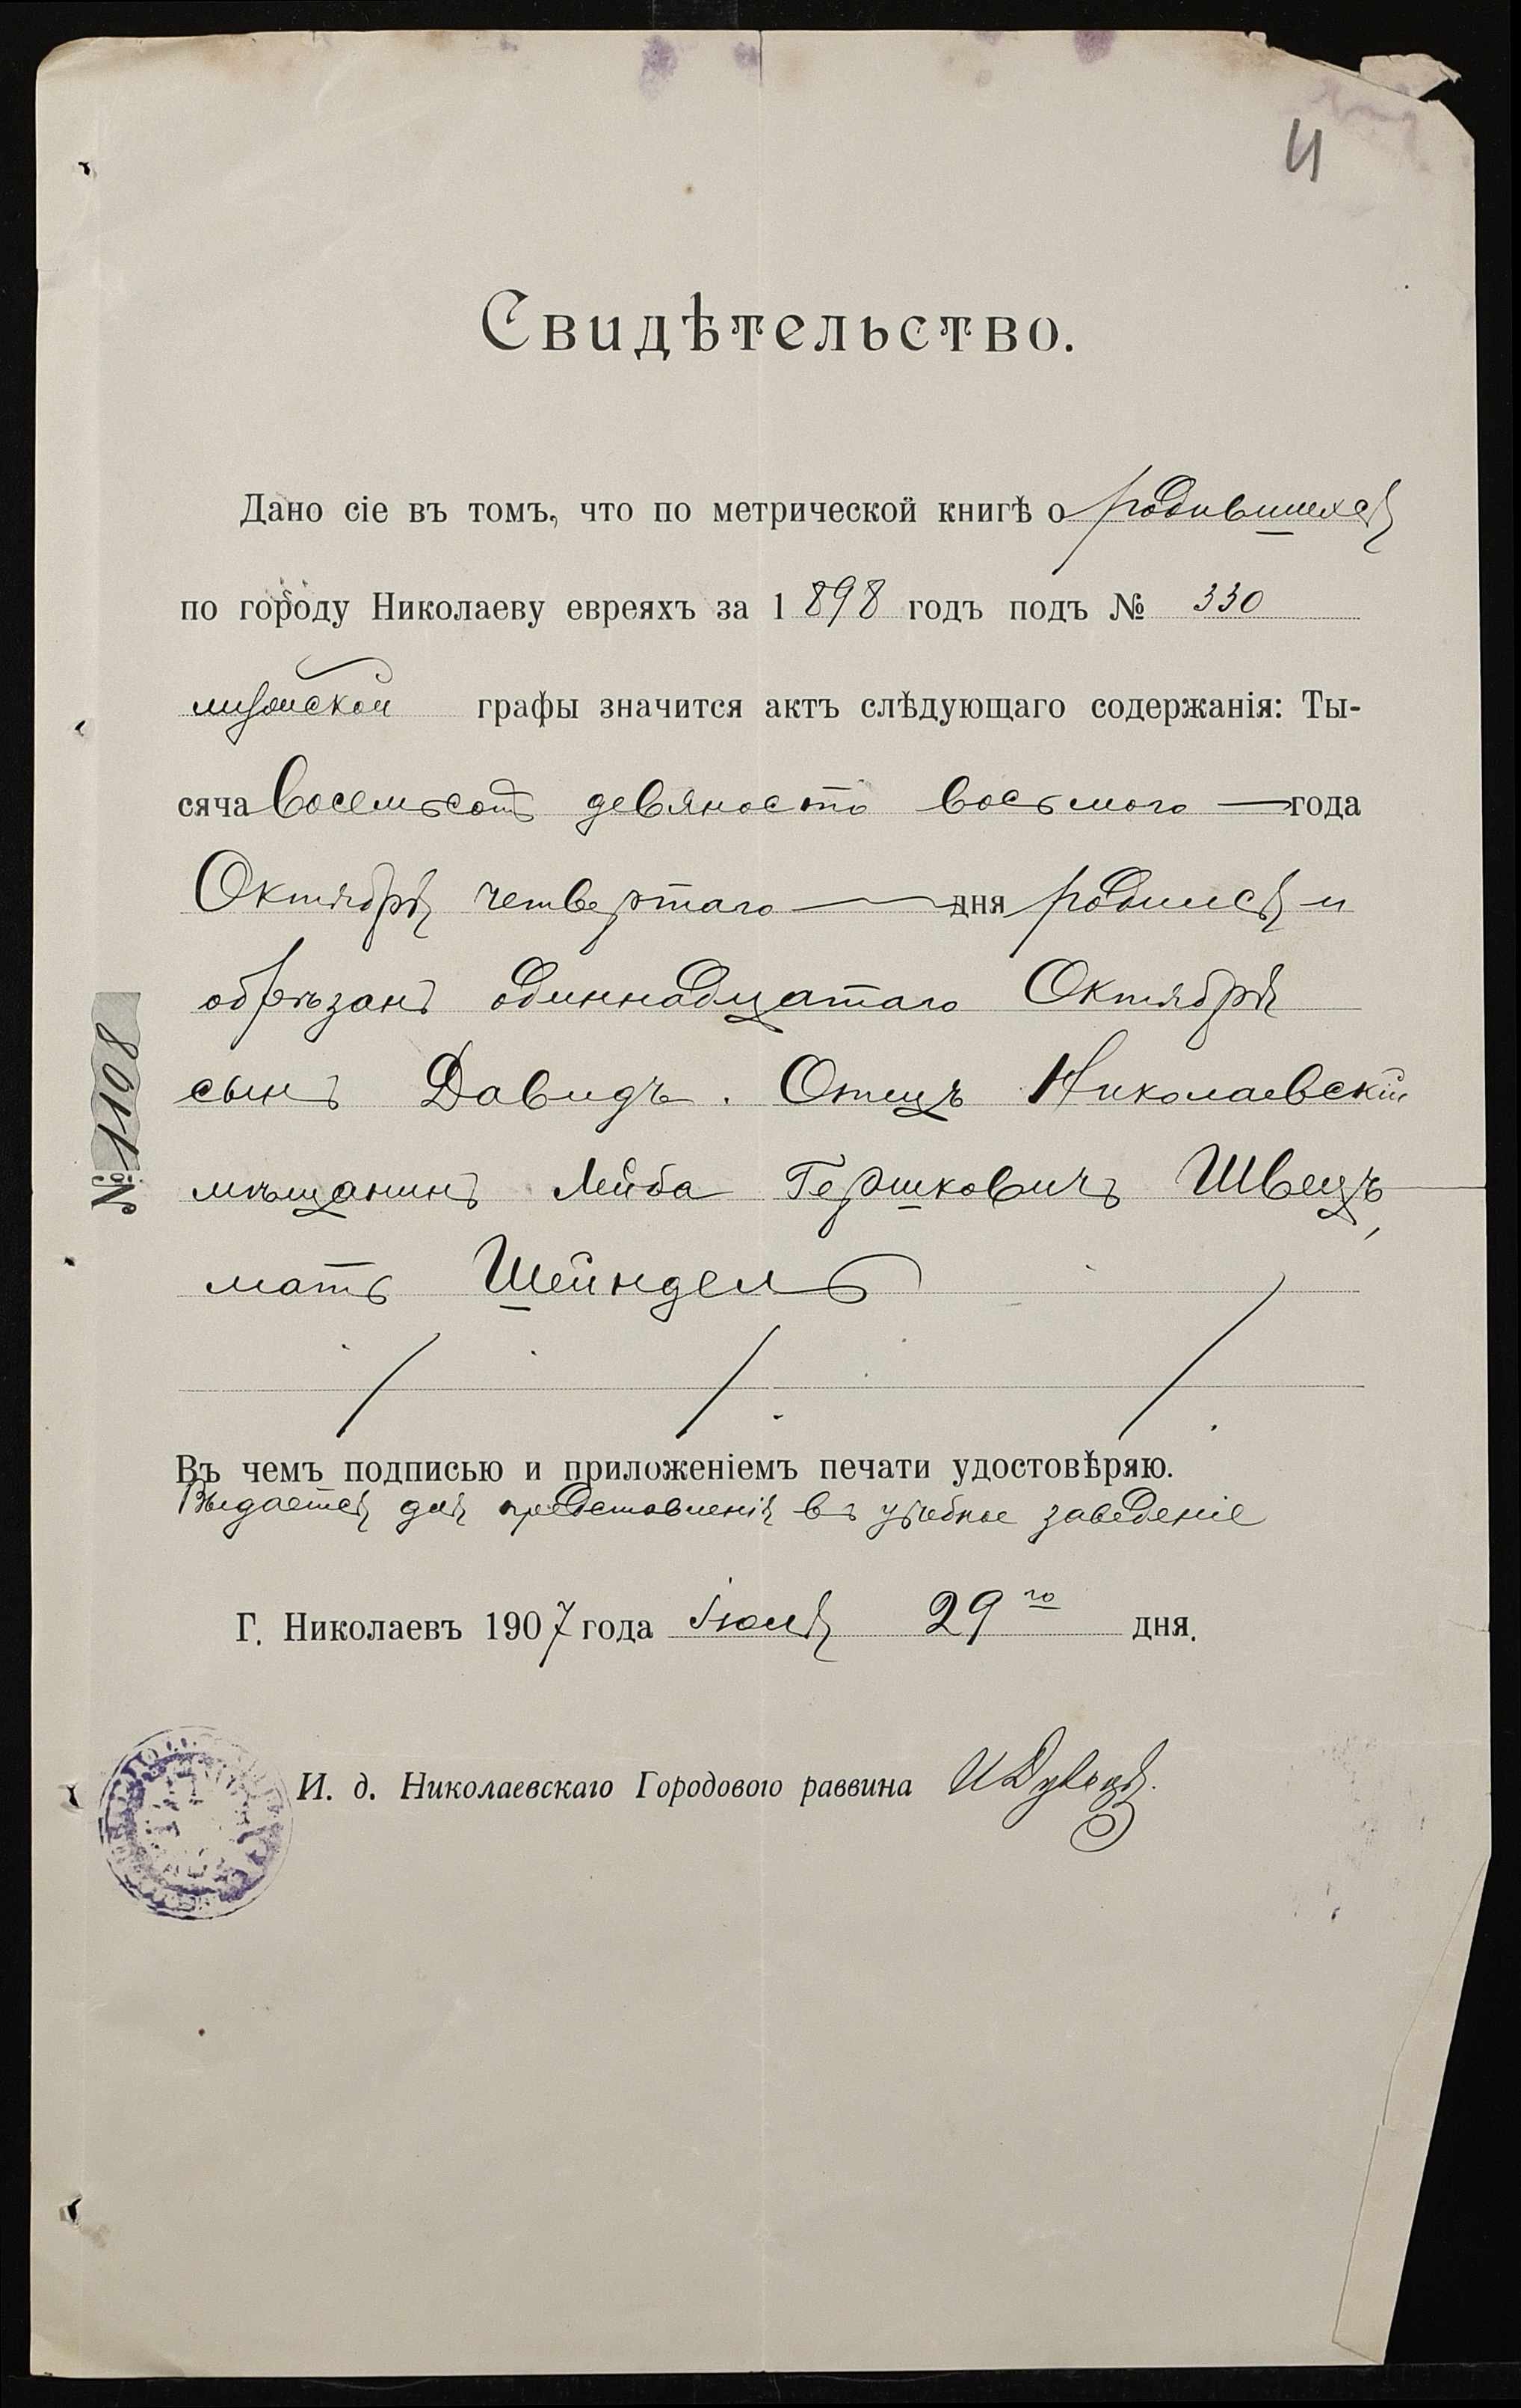 И
Свидѣтельство.
Дано сіе въ томъ, что по метрической книгѣ о родившихся
по городу Николаеву евреяхъ за 1898 годъ подъ № 330
мужской графы значится актъ слѣдующаго содержанія: Ты-
сяча восемьсотъ девяносто восьмого года
Октября четвертаго дня родился и
обрѣзанъ одиннадцатаго Октября
сынъ Давидъ. Отецъ Николаевскій
мѣщанинъ Лейба Гершковичъ Швецъ,
мать Шейндель
№ 1198
Въ чемъ подписью и приложеніемъ печати удостовѣряю.
Выдается для представленія въ учебное заведеніе
Г. Николаевъ 1907 года Іюля 29го дня.
И. д. Николаевскаго Городового раввина